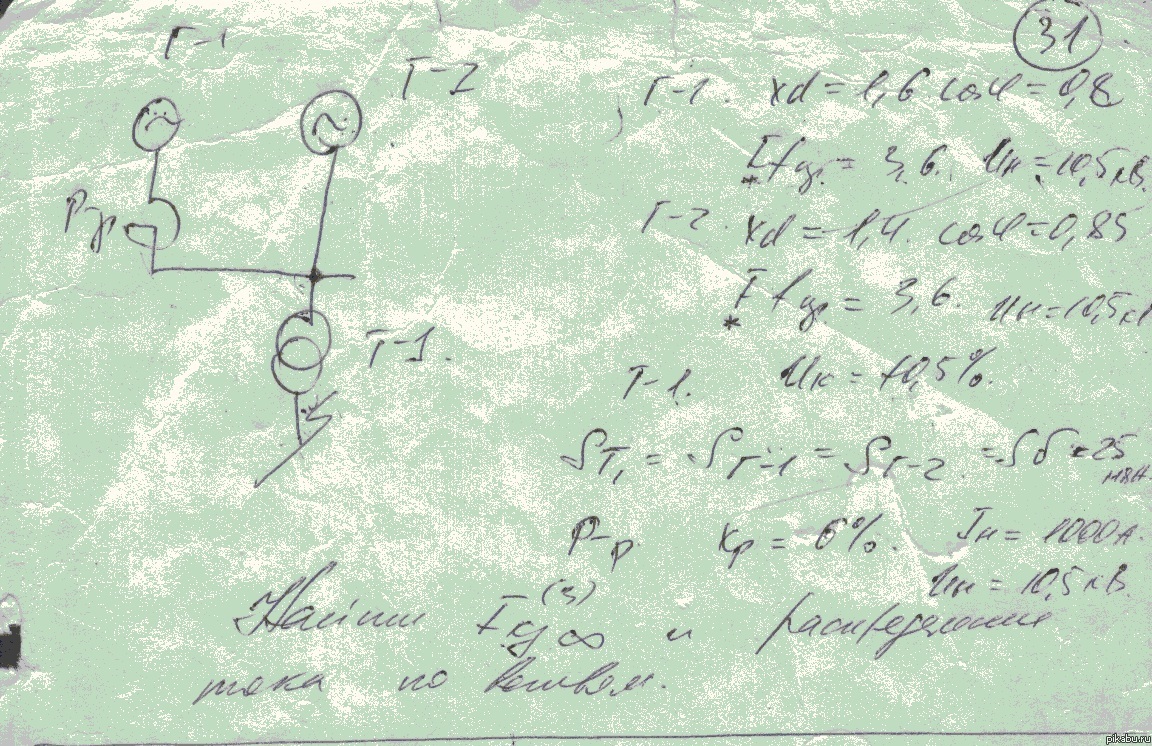 31
Г-1
Г-2
Р-р
Т-1.
Г-1. xd = 1,6 cosφ = 0,8
* If пр. = 3,6. Uн = 10,5 кВ.
Г-2. xd = 1,4. cosφ = 0,85
* If пр = 3,6. Uн = 10,5 кВ
Т-1. Uк = 10,5%.
Sт1 = Sг-1 = Sг-2 = Sб = 25 мВА.
Р-р. xр = 6%. Iн = 1000А.
Uн = 10,5 кВ.
Найти I(3) к∞ и распределение
тока по ветвям.
pikabu.ru